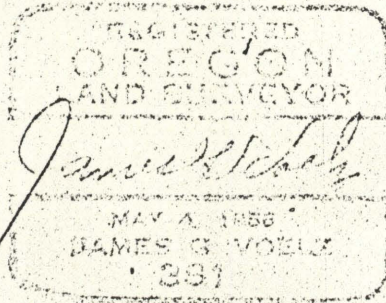 REGISTERED
OREGON
LAND SURVEYOR
James G Voelz
MAY 4, 1956
JAMES G VOELZ
391